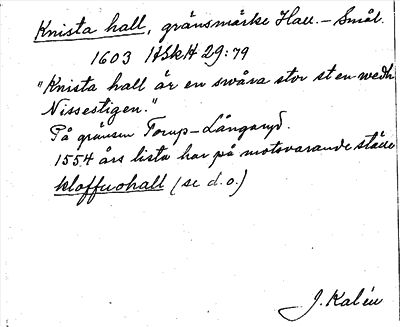 Knista hall, gränsmärke Hall. – Smål.
1603 HSkH 29:79
"Knista hall är en swåra stor sten wedh
Nissestigen."
På gränsen Torup–Långaryd.
1554 års lista har på motsvarande ställe
kloffuohall (se d.o.)
J. Kalén